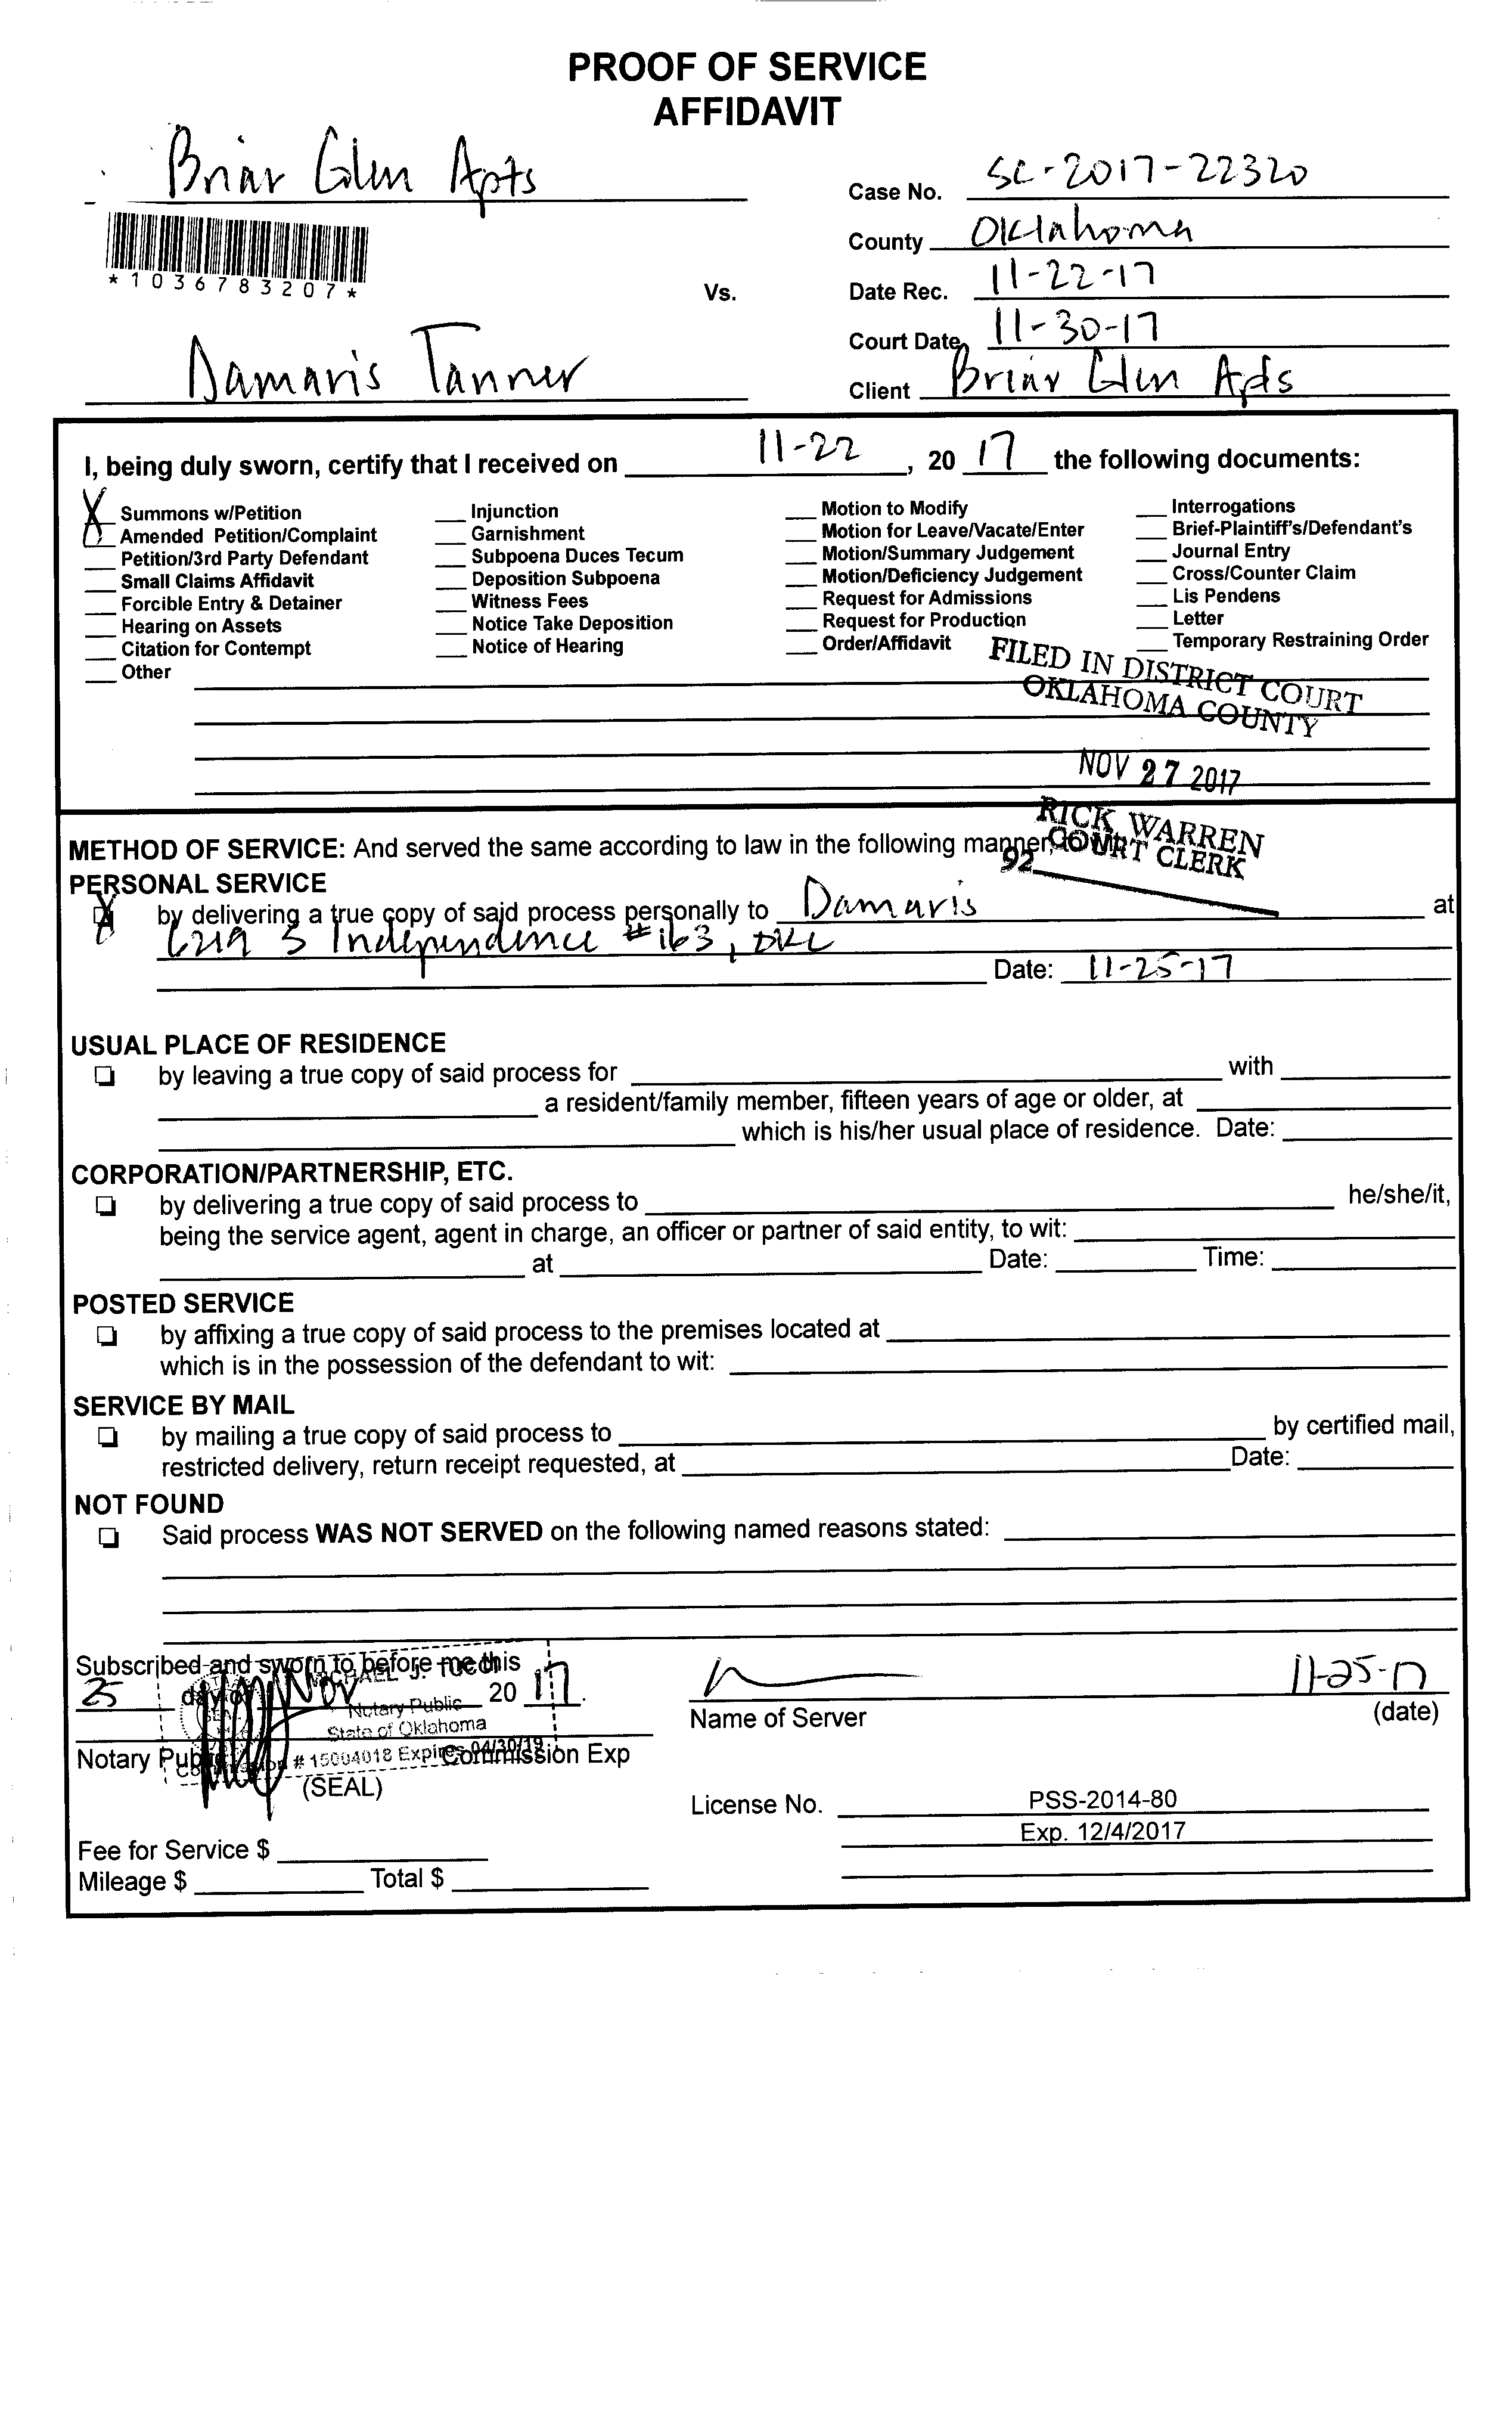 PROOF OF SERVICE
AFFIDAVIT
Briar Glen Apts
Case No. SC-2017-22320
*1036783207*
County Oklahoma
Vs.
Date Rec. 11-22-17
Court Date 11-30-17
Damaris Tanner
Client Briar Glen Apts
I, being duly sworn, certify that I received on 11-22, 20 17 the following documents:
X Summons w/Petition
Amended Petition/Complaint
Petition/3rd Party Defendant
Small Claims Affidavit
Forcible Entry & Detainer
Hearing on Assets
Citation for Contempt
Other
Injunction
Garnishment
Subpoena Duces Tecum
Deposition Subpoena
Witness Fees
Notice Take Deposition
Notice of Hearing
Motion to Modify
Motion for Leave/Vacate/Enter
Motion/Summary Judgement
Motion/Deficiency Judgement
Request for Admissions
Request for Production
Order/Affidavit
Interrogations
Brief-Plaintiff's/Defendant's
Journal Entry
Cross/Counter Claim
Lis Pendens
Letter
Temporary Restraining Order
FILED IN DISTRICT COURT
OKLAHOMA COUNTY
NOV 27 2017
RICK WARREN
COURT CLERK
92
METHOD OF SERVICE: And served the same according to law in the following manner,
PERSONAL SERVICE
X by delivering a true copy of said process personally to Damaris at
S Independence #163, OKC
Date: 11-25-17
USUAL PLACE OF RESIDENCE
by leaving a true copy of said process for with
a resident/family member, fifteen years of age or older, at
which is his/her usual place of residence. Date:
CORPORATION/PARTNERSHIP, ETC.
by delivering a true copy of said process to he/she/it,
being the service agent, agent in charge, an officer or partner of said entity, to wit:
at Date: Time:
POSTED SERVICE
by affixing a true copy of said process to the premises located at
which is in the possession of the defendant to wit:
SERVICE BY MAIL
by mailing a true copy of said process to by certified mail,
restricted delivery, return receipt requested, at Date:
NOT FOUND
Said process WAS NOT SERVED on the following named reasons stated:
Subscribed and sworn to before me this
25 day of Nov 20 17.
MICHAEL J.
Notary Public
State of Oklahoma
Commission # 15004018 Expires 04/30/19
Notary Public Commission Exp
(SEAL)
11-25-17
Name of Server (date)
License No. PSS-2014-80
Exp. 12/4/2017
Fee for Service $
Mileage $ Total $